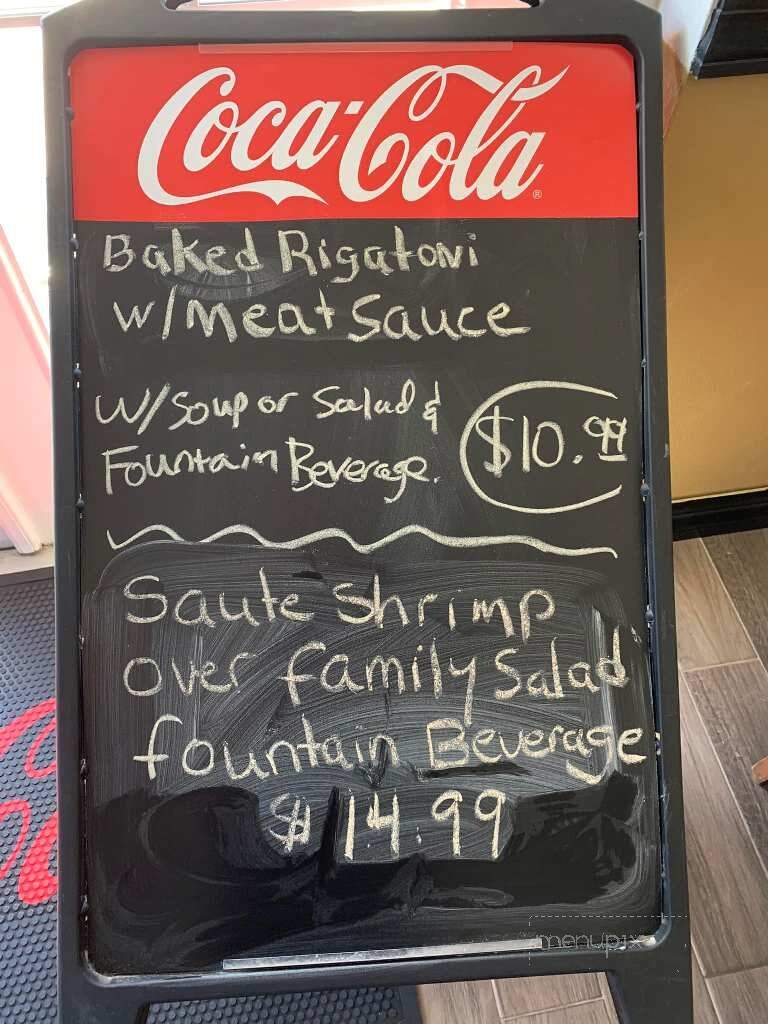 Coca-Cola
Baked Rigatoni
w/Meat Sauce
w/Soup or Salad &
Fountain Beverage. $10.99
Saute Shrimp
over family Salad
fountain Beverage
$14.99
menupix